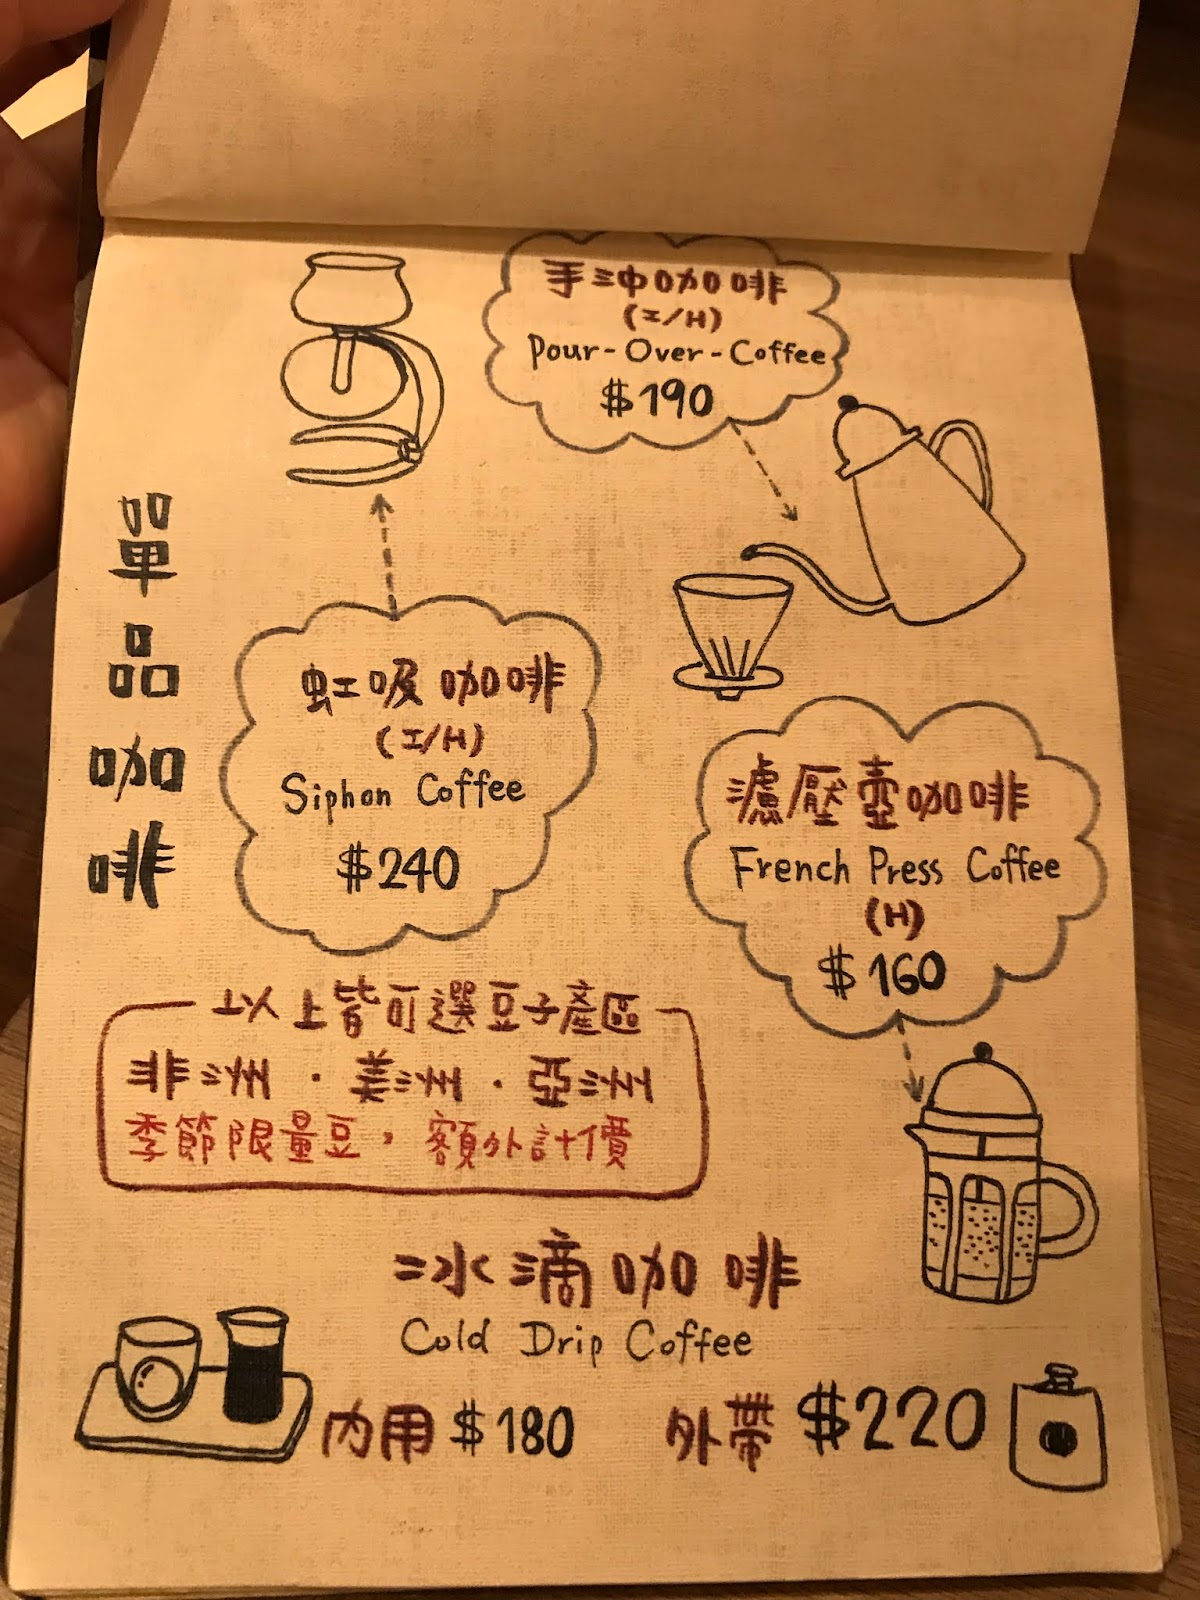 單品咖啡
手沖咖啡
(I/H)
Pour-Over-Coffee
$190
虹吸咖啡
(I/H)
Siphon Coffee
$240
濾壓壺咖啡
French Press Coffee
(H)
$160
以上皆可選豆子產區
非洲·美洲·亞洲
季節限量豆，額外計價
冰滴咖啡
Cold Drip Coffee
內用 $180 外帶 $220